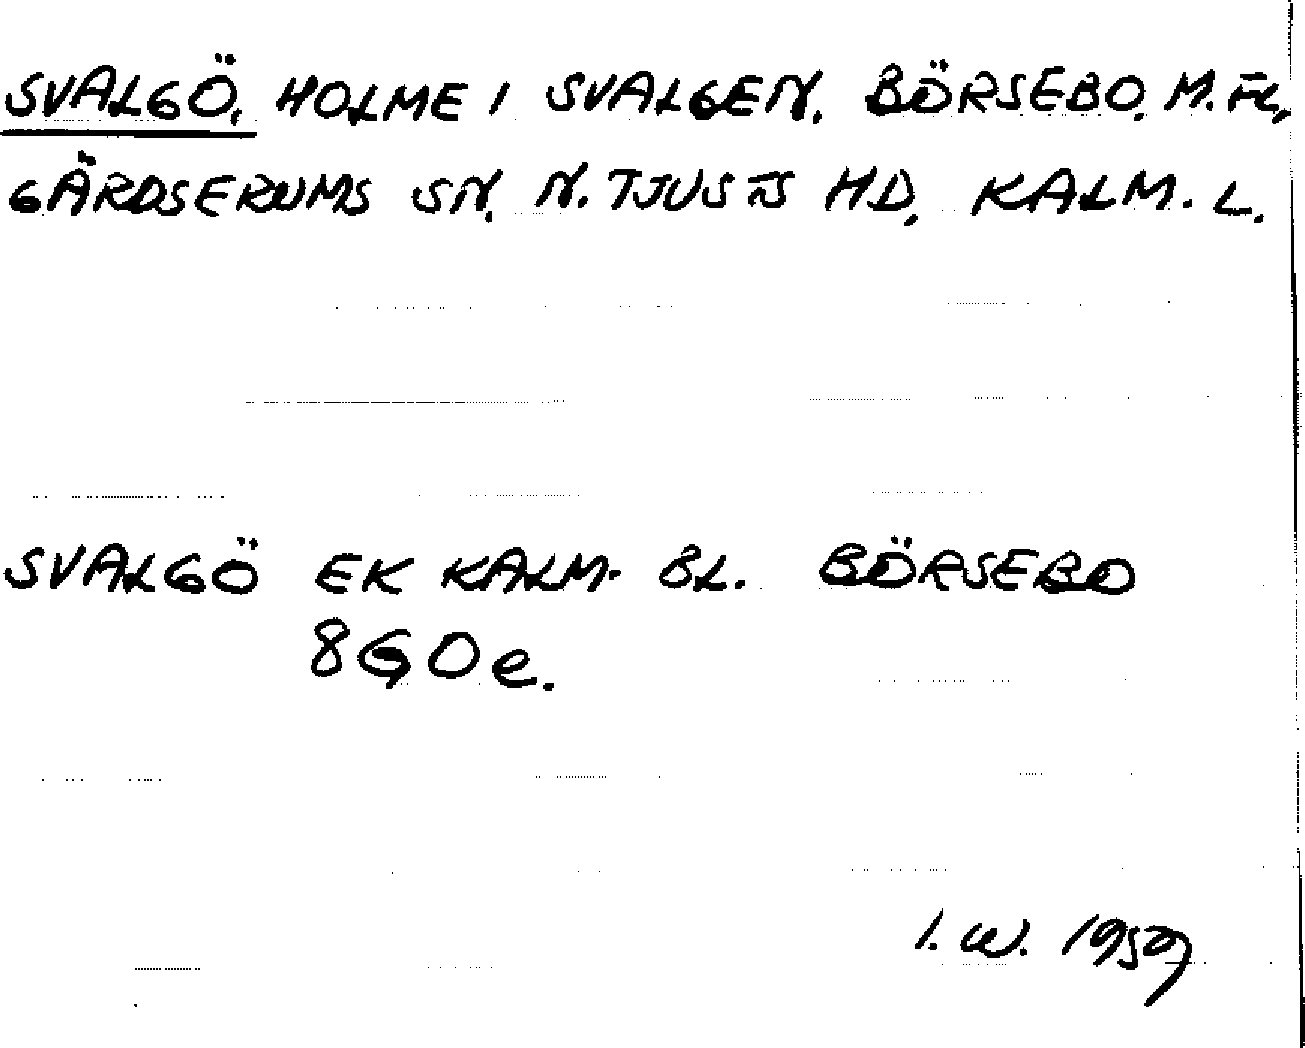 SVALGÖ, HOLME I SVALGEN, BÖRSEBO, M. FL,
GÄRDSERUMS SN, N. TJUSTS HD, KALM. L.
SVALGÖ EK KALM. BL. BÖRSEBO
8G0e.
I. W. 1959